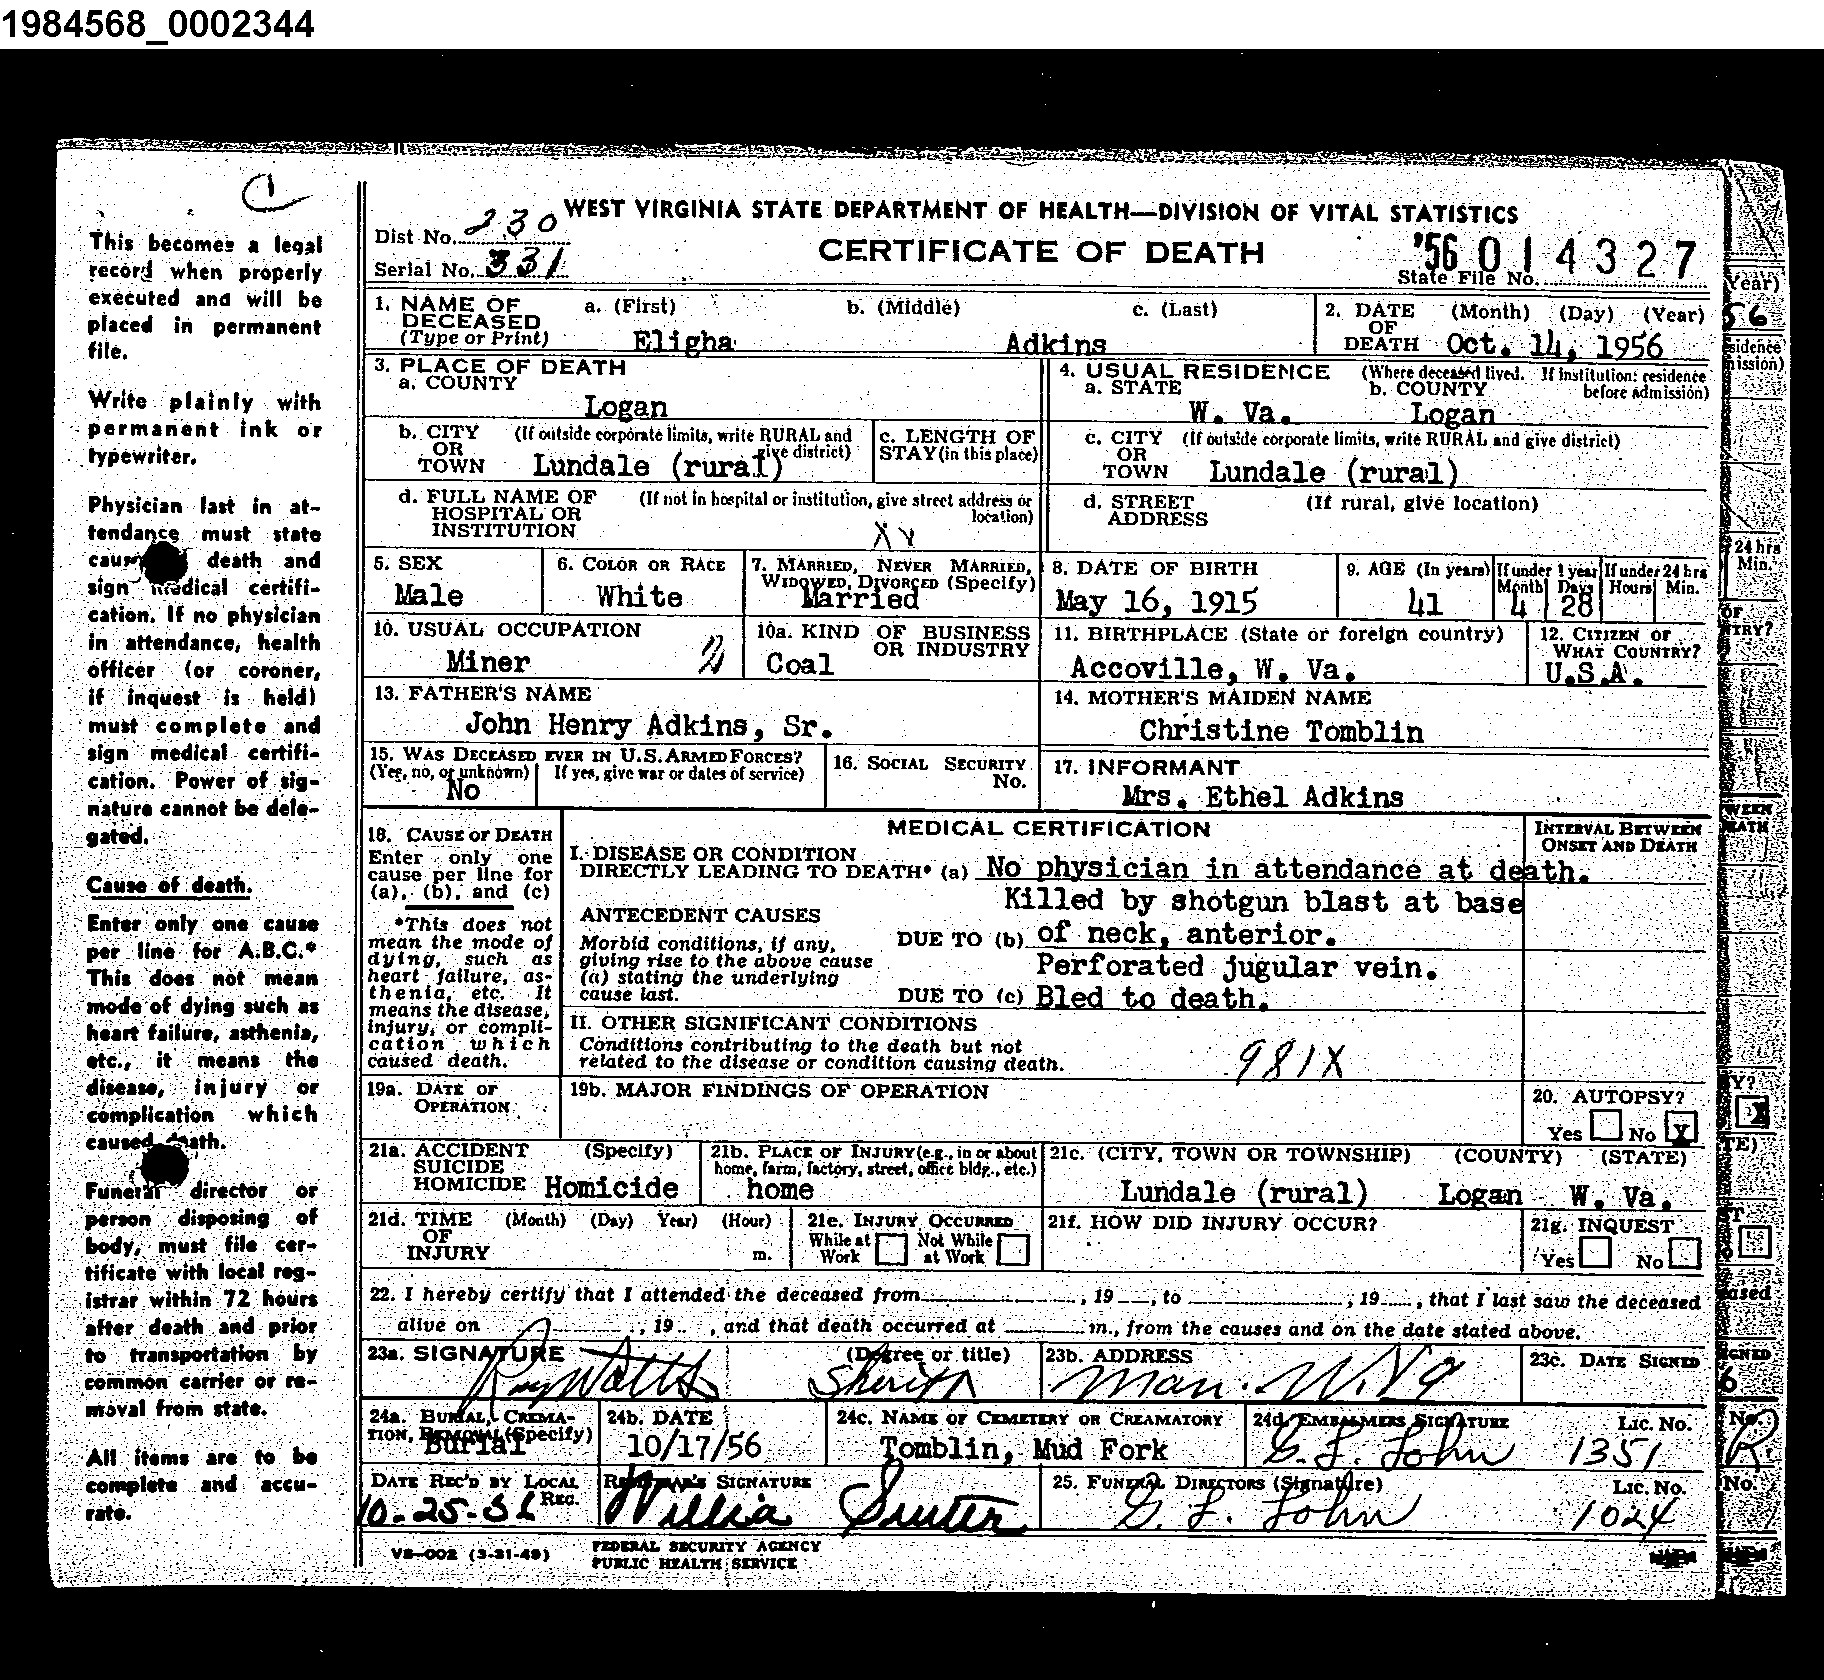 1984568_0002344
This becomes a legal
record when properly
executed and will be
placed in permanent
file.
Write plainly with
permanent ink or
typewriter.
Physician last in at-
tendance must state
death and
sign medical certifi-
cation. If no physician
in attendance, health
officer (or coroner,
if inquest is held)
must complete and
sign medical certifi-
cation. Power of sig-
nature cannot be dele-
gated.
Cause of death.
Enter only one cause
per line for A.B.C.*
This does not mean
mode of dying such as
heart failure, asthenia,
etc., it means the
disease, injury or
complication which
caused death.
Funeral director or
person disposing of
body, must file cer-
tificate with local reg-
istrar within 72 hours
after death and prior
to transportation by
common carrier or re-
moval from state.
All items are to be
complete and accu-
rate.
WEST VIRGINIA STATE DEPARTMENT OF HEALTH—DIVISION OF VITAL STATISTICS
Dist No. 230
CERTIFICATE OF DEATH
'56 014327
Serial No. 331
State File No.
1. NAME OF DECEASED (Type or Print)
a. (First) b. (Middle) c. (Last)
Eligha Adkins
2. DATE OF DEATH (Month) (Day) (Year)
Oct. 14, 1956
3. PLACE OF DEATH
a. COUNTY
Logan
4. USUAL RESIDENCE (Where deceased lived. If institution: residence before admission)
a. STATE b. COUNTY
W. Va. Logan
b. CITY OR TOWN (If outside corporate limits, write RURAL and give district)
Lundale (rural)
c. LENGTH OF STAY (in this place)
c. CITY OR TOWN (If outside corporate limits, write RURAL and give district)
Lundale (rural)
d. FULL NAME OF HOSPITAL OR INSTITUTION (If not in hospital or institution, give street address or location)
d. STREET ADDRESS (If rural, give location)
5. SEX
Male
6. COLOR OR RACE
White
7. MARRIED, NEVER MARRIED, WIDOWED, DIVORCED (Specify)
Married
8. DATE OF BIRTH
May 16, 1915
9. AGE (In years)
41
If under 1 year Month Days
4 28
If under 24 hrs Hours Min.
10. USUAL OCCUPATION
Miner
10a. KIND OF BUSINESS OR INDUSTRY
Coal
11. BIRTHPLACE (State or foreign country)
Accoville, W. Va.
12. CITIZEN OF WHAT COUNTRY?
U.S.A.
13. FATHER'S NAME
John Henry Adkins, Sr.
14. MOTHER'S MAIDEN NAME
Christine Tomblin
15. WAS DECEASED EVER IN U.S. ARMED FORCES?
(Yes, no, or unknown) If yes, give war or dates of service)
No
16. SOCIAL SECURITY No.
17. INFORMANT
Mrs. Ethel Adkins
18. CAUSE OF DEATH
Enter only one
cause per line for
(a), (b), and (c)
*This does not
mean the mode of
dying, such as
heart failure, as-
thenia, etc. It
means the disease,
injury, or compli-
cation which
caused death.
MEDICAL CERTIFICATION
INTERVAL BETWEEN ONSET AND DEATH
I. DISEASE OR CONDITION
DIRECTLY LEADING TO DEATH* (a) No physician in attendance at death.
Killed by shotgun blast at base
ANTECEDENT CAUSES
Morbid conditions, if any,
giving rise to the above cause
(a) stating the underlying
cause last.
DUE TO (b) of neck, anterior.
Perforated jugular vein.
DUE TO (c) Bled to death.
II. OTHER SIGNIFICANT CONDITIONS
Conditions contributing to the death but not
related to the disease or condition causing death.
981X
19a. DATE OF OPERATION
19b. MAJOR FINDINGS OF OPERATION
20. AUTOPSY?
Yes No X
21a. ACCIDENT SUICIDE HOMICIDE (Specify)
Homicide
21b. PLACE OF INJURY (e.g., in or about home, farm, factory, street, office bldg., etc.)
home
21c. (CITY, TOWN OR TOWNSHIP) (COUNTY) (STATE)
Lundale (rural) Logan W. Va.
21d. TIME OF INJURY (Month) (Day) Year) (Hour) m.
21e. INJURY OCCURRED
While at Work Not While at Work
21f. HOW DID INJURY OCCUR?
21g. INQUEST
Yes No
22. I hereby certify that I attended the deceased from , 19 , to , 19 , that I last saw the deceased
alive on , 19 , and that death occurred at m., from the causes and on the date stated above.
23a. SIGNATURE (Degree or title)
Ray Watts Sheriff
23b. ADDRESS
Man. W. Va
23c. DATE SIGNED
24a. BURIAL, CREMATION, REMOVAL (Specify)
Burial
24b. DATE
10/17/56
24c. NAME OF CEMETERY OR CREAMATORY
Tomblin, Mud Fork
24d. EMBALMERS SIGNATURE LIC. NO.
G. L. John 1351
DATE REC'D BY LOCAL REG.
10-25-56
REGISTRAR'S SIGNATURE
25. FUNERAL DIRECTORS (Signature) LIC. NO.
G. L. John 1024
VS—002 (3-31-49)
FEDERAL SECURITY AGENCY
PUBLIC HEALTH SERVICE